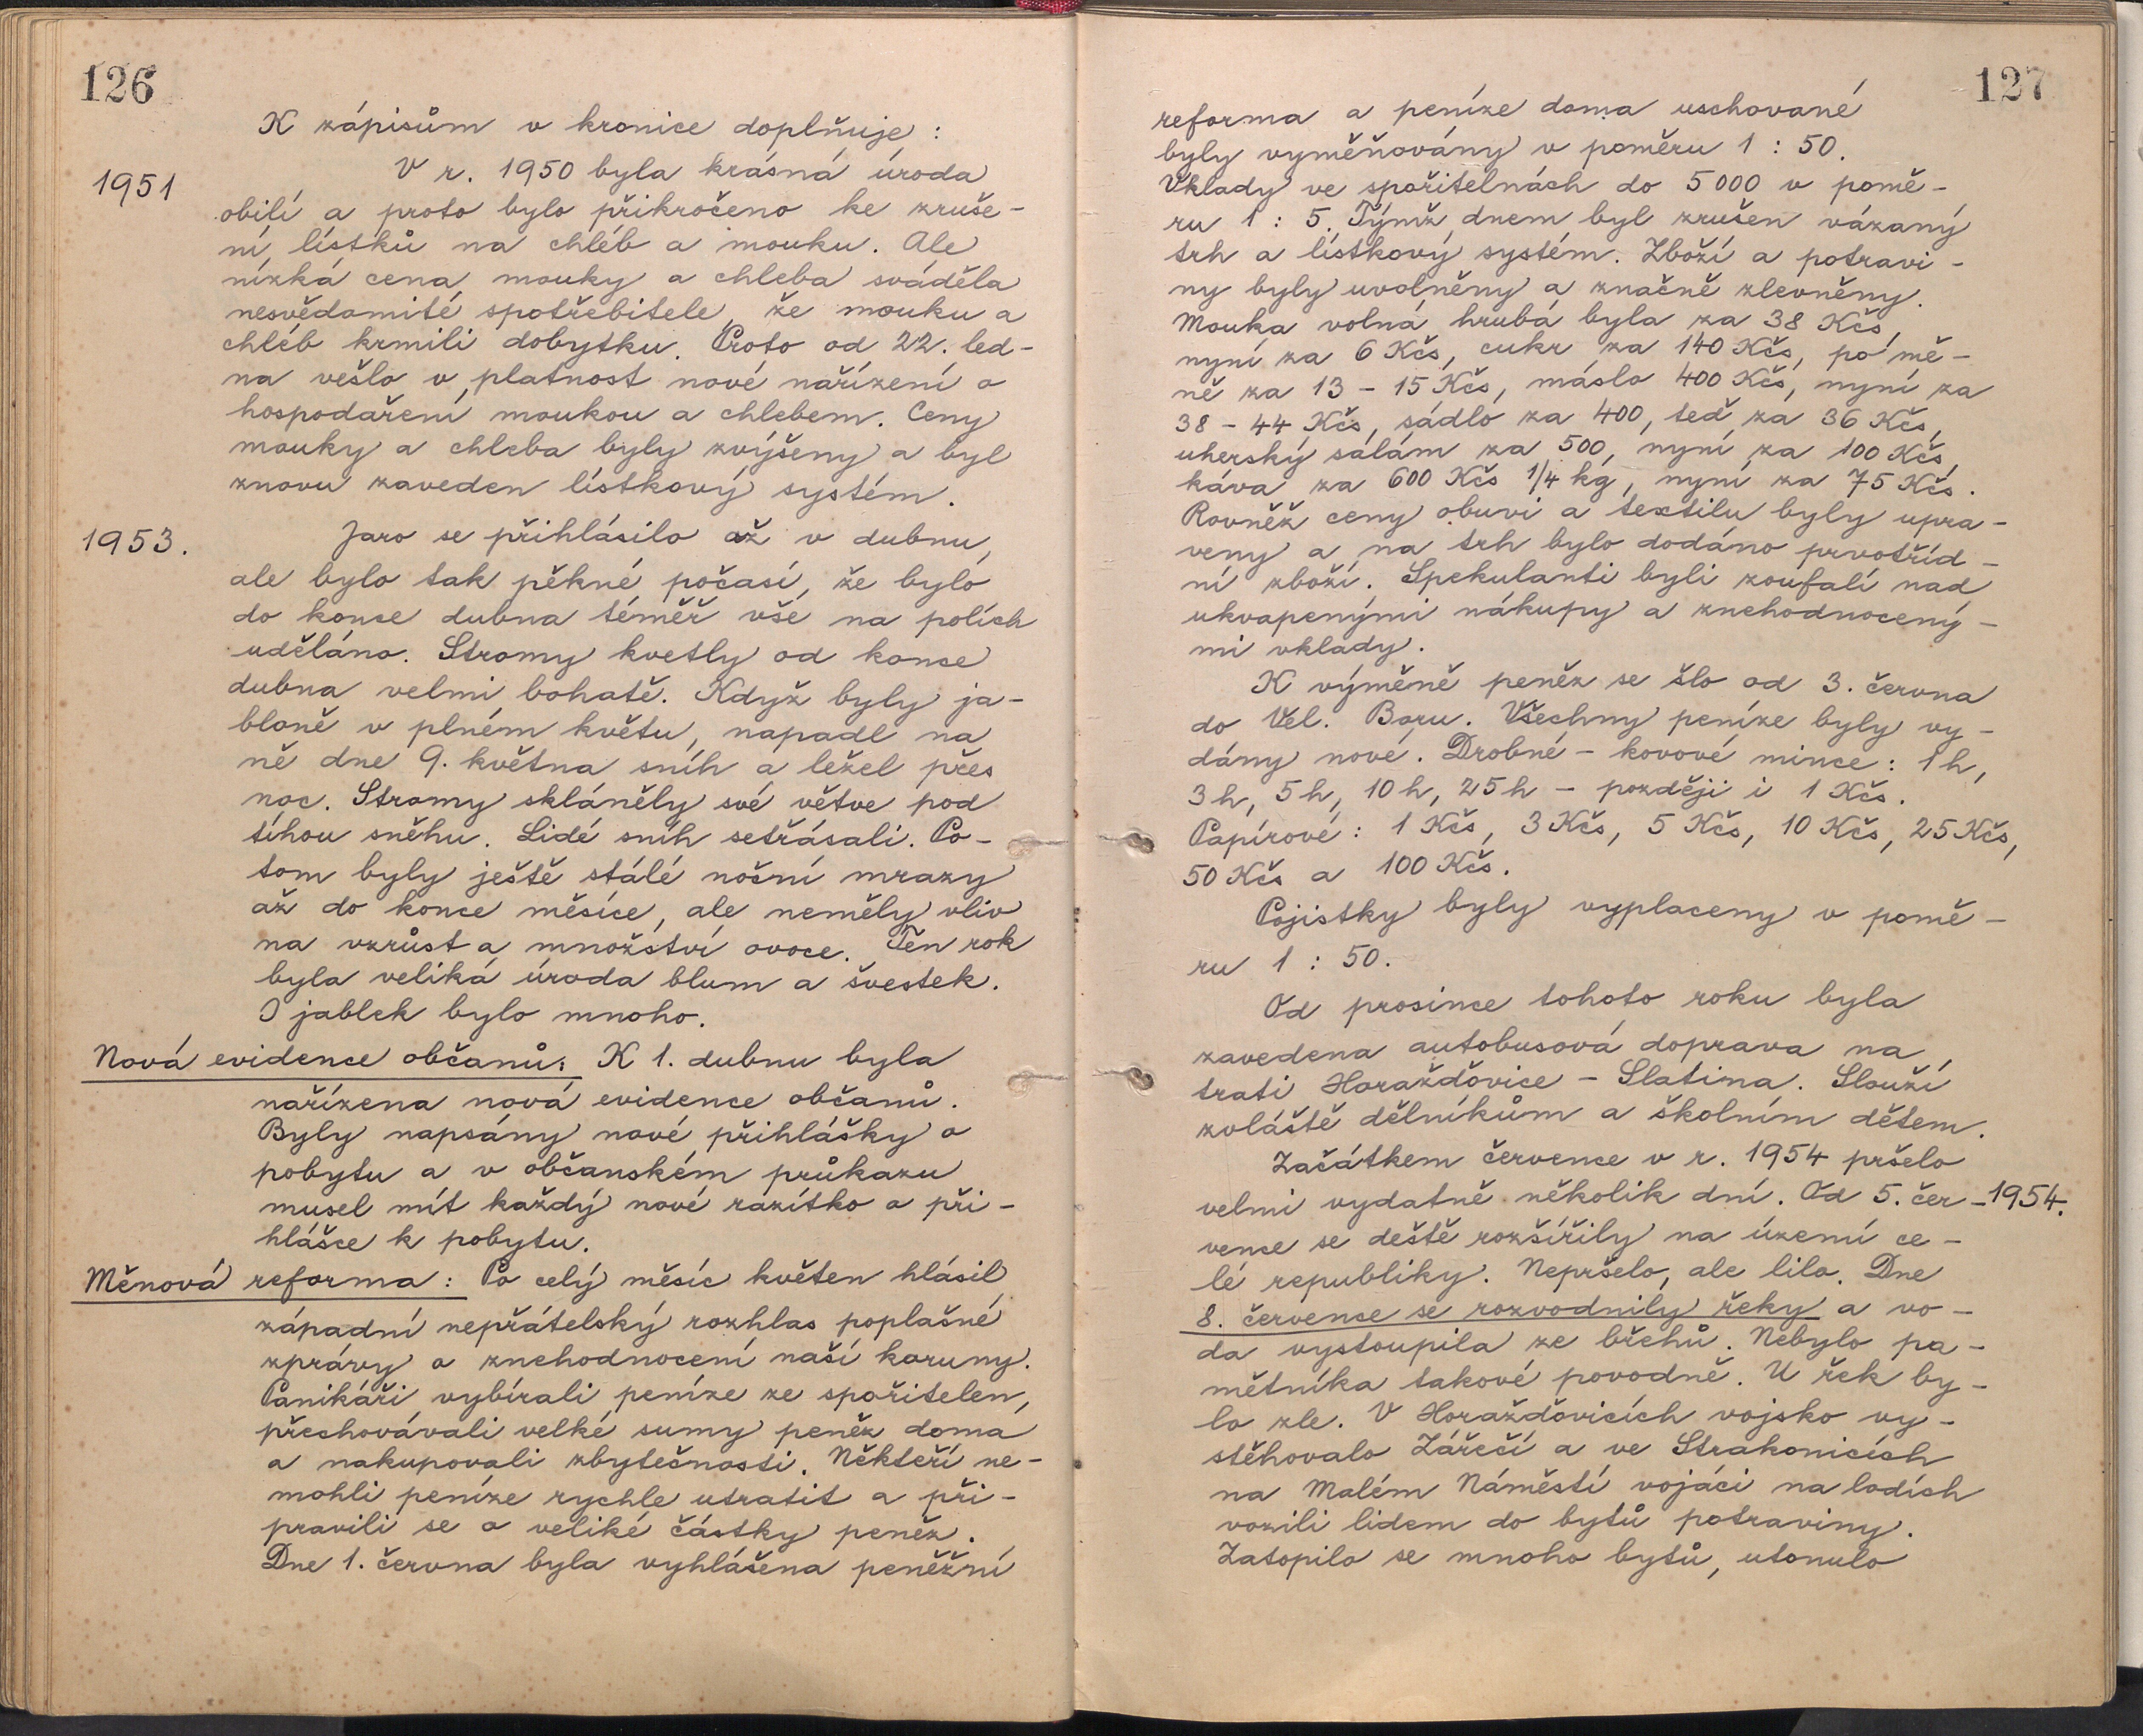 126
K zápisům v kronice doplňuje:
1951
V r. 1950 byla krásná úroda
obilí a proto bylo přikročeno ke zruše-
ní lístků na chléb a mouku. Ale
nízká cena mouky a chleba sváděla
nesvědomité spotřebitele, že mouku a
chléb krmili dobytku. Proto od 22. led-
na vešlo v platnost nové nařízení o
hospodaření moukou a chlebem. Ceny
mouky a chleba byly zvýšeny a byl
znovu zaveden lístkový systém.
1953.
Jaro se přihlásilo až v dubnu,
ale bylo tak pěkné počasí, že bylo
do konce dubna téměř vše na polích
uděláno. Stromy kvetly od konce
dubna velmi bohatě. Když byly ja-
bloně v plném květu, napadl na
ně dne 9. května sníh a ležel přes
noc. Stromy skláněly své větve pod
tíhou sněhu. Lidé sníh setřásali. Po-
tom byly ještě stálé noční mrazy
až do konce měsíce, ale neměly vliv
na vzrůst a množství ovoce. Ten rok
byla veliká úroda blum a švestek.
I jablek bylo mnoho.
Nová evidence občanů: K 1. dubnu byla
nařízena nová evidence občanů.
Byly napsány nové přihlášky o
pobytu a v občanském průkazu
musel mít každý nové razítko o při-
hlášce k pobytu.
Měnová reforma: Po celý měsíc květen hlásil
západní nepřátelský rozhlas poplašné
zprávy o znehodnocení naší koruny.
Panikáři vybírali peníze ze spořitelen,
přechovávali velké sumy peněz doma
a nakupovali zbytečnosti. Někteří ne-
mohli peníze rychle utratit a při-
pravili se o veliké částky peněz.
Dne 1. června byla vyhlášena peněžní
127
reforma a peníze doma uschované
byly vyměňovány v poměru 1 : 50.
Vklady ve spořitelnách do 5 000 v pomě-
ru 1 : 5. Týmž dnem byl zrušen vázaný
trh a lístkový systém. Zboží a potravi-
ny byly uvolněny a značně zlevněny.
Mouka volná hrubá byla za 38 Kčs,
nyní za 6 Kčs, cukr za 140 Kčs, po mě-
ně za 13 - 15 Kčs, máslo 400 Kčs, nyní za
38 - 44 Kčs, sádlo za 400, teď za 36 Kčs,
uherský salám za 500, nyní za 100 Kčs,
káva za 600 Kčs 1/4 kg, nyní za 75 Kčs.
Rovněž ceny obuvi a textilu byly upra-
veny a na trh bylo dodáno prvotříd-
ní zboží. Spekulanti byli zoufalí nad
ukvapenými nákupy a znehodnocený-
mi vklady.
K výměně peněz se šlo od 3. června
do Vel. Boru. Všechny peníze byly vy-
dány nové. Drobné - kovové mince: 1 h,
3 h, 5 h, 10 h, 25 h - později i 1 Kčs.
Papírové: 1 Kčs, 3 Kčs, 5 Kčs, 10 Kčs, 25 Kčs,
50 Kčs a 100 Kčs.
Pojistky byly vyplaceny v pomě-
ru 1 : 50.
Od prosince tohoto roku byla
zavedena autobusová doprava na
trati Horažďovice - Slatina. Slouží
zvláště dělníkům a školním dětem.
Začátkem července v r. 1954 pršelo
velmi vydatně několik dní. Od 5. čer- 1954.
vence se deště rozšířily na území ce-
lé republiky. Nepršelo, ale lilo. Dne
8. července se rozvodnily řeky a vo-
da vystoupila ze břehů. Nebylo pa-
mětníka takové povodně. U řek by-
lo zle. V Horažďovicích vojsko vy-
stěhovalo Zářečí a ve Strakonicích
na Malém Náměstí vojáci na lodích
vozili lidem do bytů potraviny.
Zatopilo se mnoho bytů, utonulo